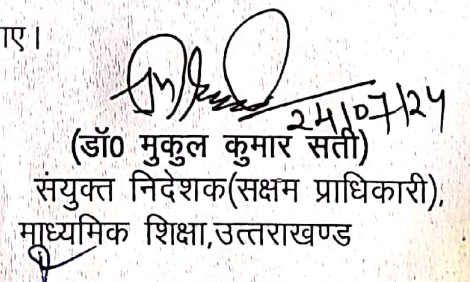 ाए।
24/07/24
(डॉ0 मुकुल कुमार सती)
संयुक्त निदेशक(सक्षम प्राधिकारी),
माध्यमिक शिक्षा,उत्तराखण्ड